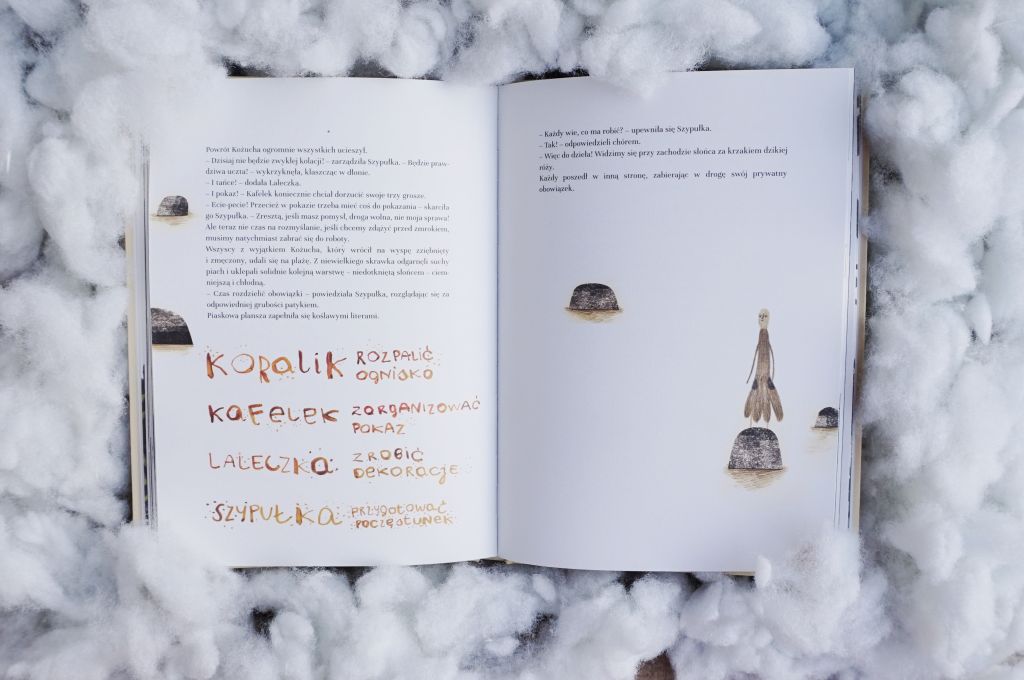 Powrót Kożucha ogromnie wszystkich ucieszył.
– Dzisiaj nie będzie zwykłej kolacji! – zarządziła Szypułka. – Będzie praw-
dziwa uczta! – wykrzyknęła, klaszcząc w dłonie.
– I tańce! – dodała Laleczka.
– I pokaz! – Kafelek koniecznie chciał dorzucić swoje trzy grosze.
– Ecie-pecie! Przecież w pokazie trzeba mieć coś do pokazania – skarciła
go Szypułka. – Zresztą, jeśli masz pomysł, droga wolna, nie moja sprawa!
Ale teraz nie czas na rozmyślanie, jeśli chcemy zdążyć przed zmrokiem,
musimy natychmiast zabrać się do roboty.
Wszyscy z wyjątkiem Kożucha, który wrócił na wyspę zziębnięty
i zmęczony, udali się na plażę. Z niewielkiego skrawka odgarnęli suchy
piach i uklepali solidnie kolejną warstwę – niedotkniętą słońcem – ciem-
niejszą i chłodną.
– Czas rozdzielić obowiązki – powiedziała Szypułka, rozglądając się za
odpowiedniej grubości patykiem.
Piaskowa plansza zapełniła się koślawymi literami.
KORALIK ROZPALIĆ
OGNISKO
KAFELEK ZORGANIZOWAĆ
POKAZ
LALECZKA ZROBIĆ
DEKORACJE
SZYPUŁKA PRZYGOTOWAĆ
POCZĘSTUNEK
– Każdy wie, co ma robić? – upewniła się Szypułka.
– Tak! – odpowiedzieli chórem.
– Więc do dzieła! Widzimy się przy zachodzie słońca za krzakiem dzikiej
róży.
Każdy poszedł w inną stronę, zabierając w drogę swój prywatny
obowiązek.